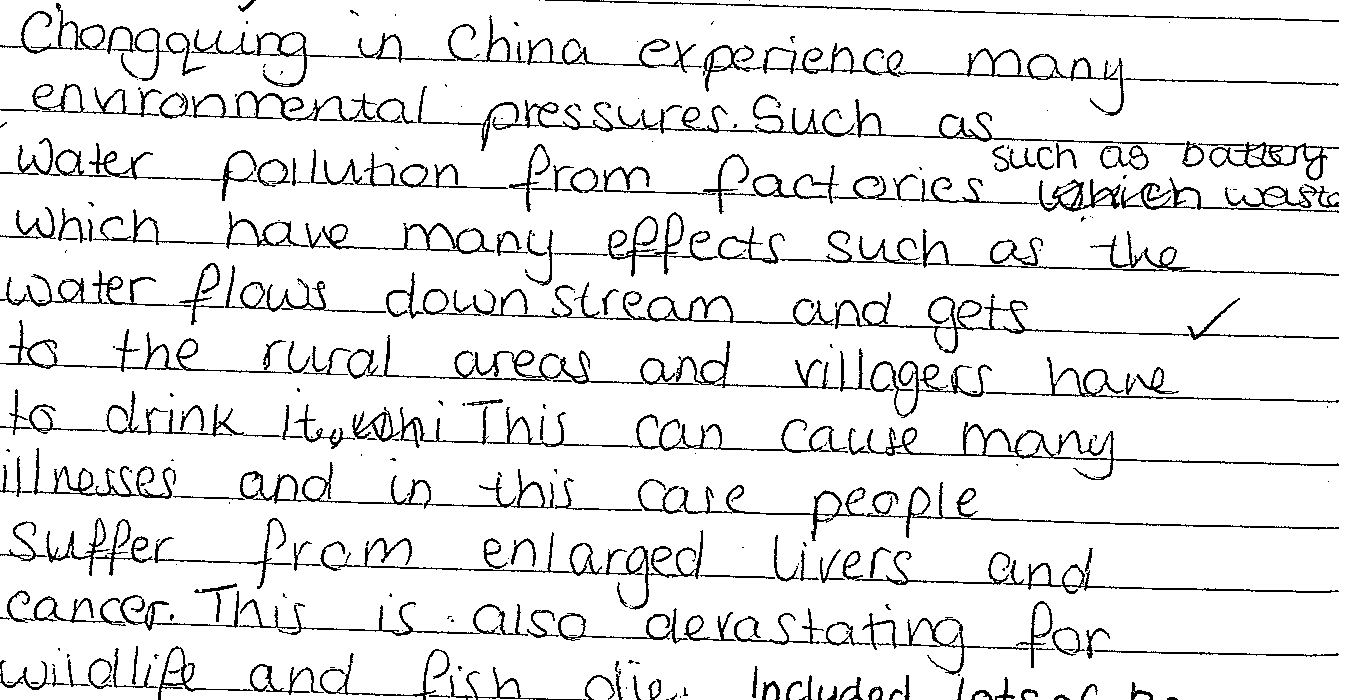 Chongquing in China experience many
environmental pressures. Such as
such as battery
water pollution from factories which waste
which have many effects such as the
water flows down stream and gets
to the rural areas and villagers have
to drink it, whi This can cause many
illnesses and in this case people
suffer from enlarged livers and
cancer. This is also devastating for
wildlife and fish die. Included lots of